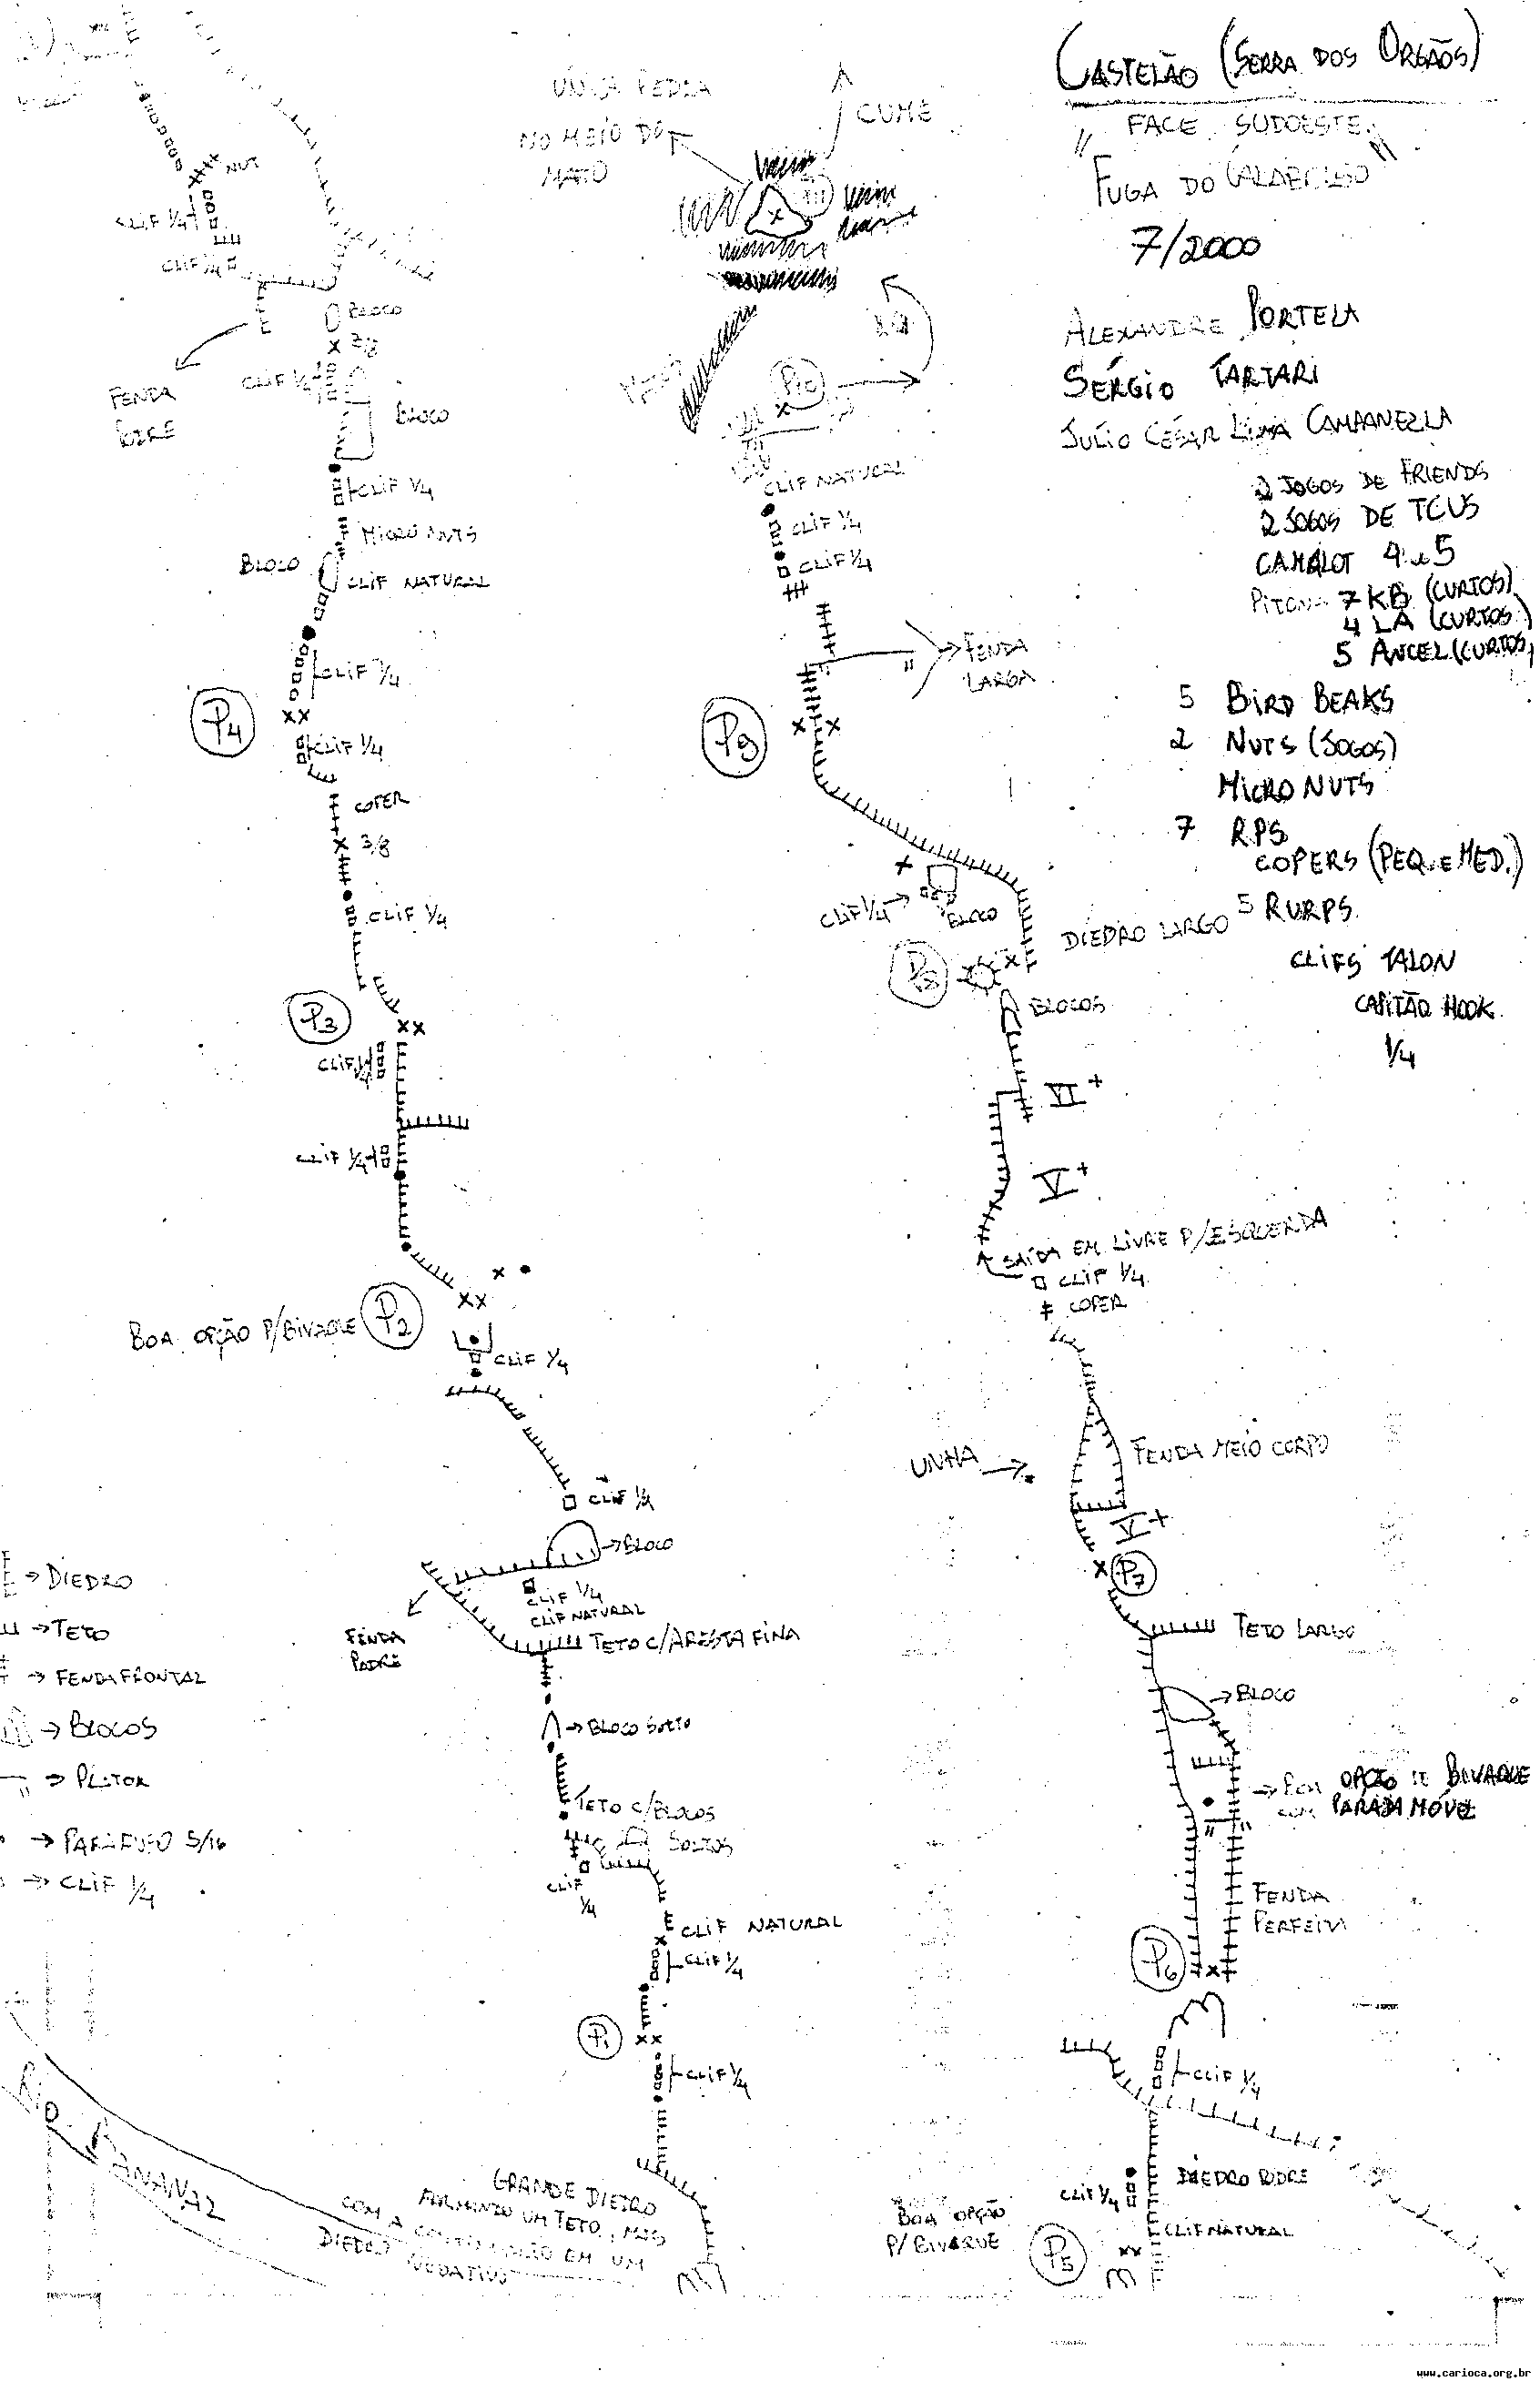 CASTELÃO (SERRA DOS ORGÃOS)
FACE SUDOESTE
"FUGA DO "
7/2000
ALEXANDRE PORTELA
SÉRGIO TARTARI
JULIO CÉSAR LIMA CAMPANELLA
2 JOGOS DE FRIENDS
2 JOGOS DE TCUS
CAMALOT 4 e 5
PITONS 7 KB (CURTOS)
4 LA (CURTOS)
5 ANGEL (CURTOS)
5 BIRD BEAKS
2 NUTS (JOGOS)
MICRO NUTS
7 RPS
COPERS (PEQ. e MED.)
5 RURPS
CLIFS TALON
CAPITÃO HOOK
1/4
NUT
CLIF 1/4
CLIF 1/4
BLOCO
3/8
CLIF 1/4
FENDA
PODRE
BLOCO
CLIF 1/4
MICRO NUTS
BLOCO
CLIF NATURAL
CLIF 1/4
P4
CLIF 1/4
COPER
3/8
CLIF 1/4
P3
CLIF 1/4
CLIF 1/4
BOA OPÇÃO P/BIVAQUE P2
CLIF 1/4
CLIF 1/4
BLOCO
CLIF 1/4
CLIF NATURAL
FENDA
PODRE
TETO C/ARESTA FINA
BLOCO SOLTO
TETO C/BLOCOS
SOLTOS
CLIF
1/4
CLIF NATURAL
CLIF 1/4
P1
CLIF 1/4
GRANDE DIEDRO
FORMANDO UM TETO, MAS
COM A CONTINUAÇÃO EM UM
DIEDRO
RIO
ÚNICA PEDRA
NO MEIO DO
MATO
CUME
MATO
P10
CLIF NATURAL
CLIF 1/4
CLIF 1/4
FENDA
LARGA
P9
CLIF 1/4
BLOCO
DIEDRO LARGO
P8
BLOCOS
VI+
V+
SAÍDA EM LIVRE P/ESQUERDA
CLIF 1/4
COPER
UNHA
FENDA MEIO CORPO
V+
P7
TETO LARGO
BLOCO
BOA OPÇÃO DE BIVAQUE
COM PARADA MÓVEL
FENDA
PERFEITA
P6
CLIF 1/4
DIEDRO PODRE
CLIF 1/4
CLIF NATURAL
BOA OPÇÃO
P/ BIVAQUE
P5
DIEDRO
TETO
FENDA FRONTAL
BLOCOS
PLATOR
PARAFUSO 5/16
CLIF 1/4
www.carioca.org.br